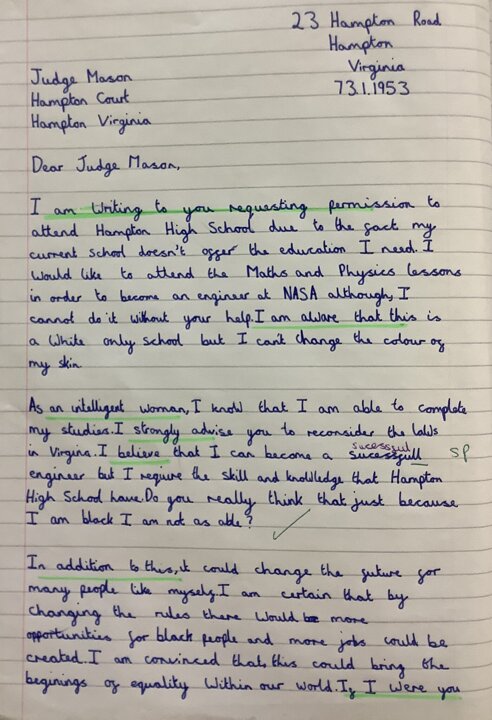 23 Hampton Road
Hampton
Virginia
73.1.1953
Judge Mason
Hampton Court
Hampton Virginia
Dear Judge Mason,
I am writing to you requesting permission to
attend Hampton High School due to the fact my
current school doesn't offer the education I need. I
would like to attend the Maths and Physics lessons
in order to become an engineer at NASA although, I
cannot do it without your help. I am alware that this is
a white only school but I can't change the colour of
my skin.
As an intelligent woman, I know that I am able to complete
my studies. I strongly advise you to reconsider the laws
in Virgina. I believe that I can become a sucessfull
sucessful
sp
engineer but I require the skill and knowlledge that Hampton
High School have. Do you really think that just because
I am black I am not as able?
In addition to this, it could change the future for
many people like myself. I am certain that by
changing the rules there would be more
opportunities for black people and more jobs could be
created. I am convinced that, this could bring the
beginings of equality within our world. If I were you